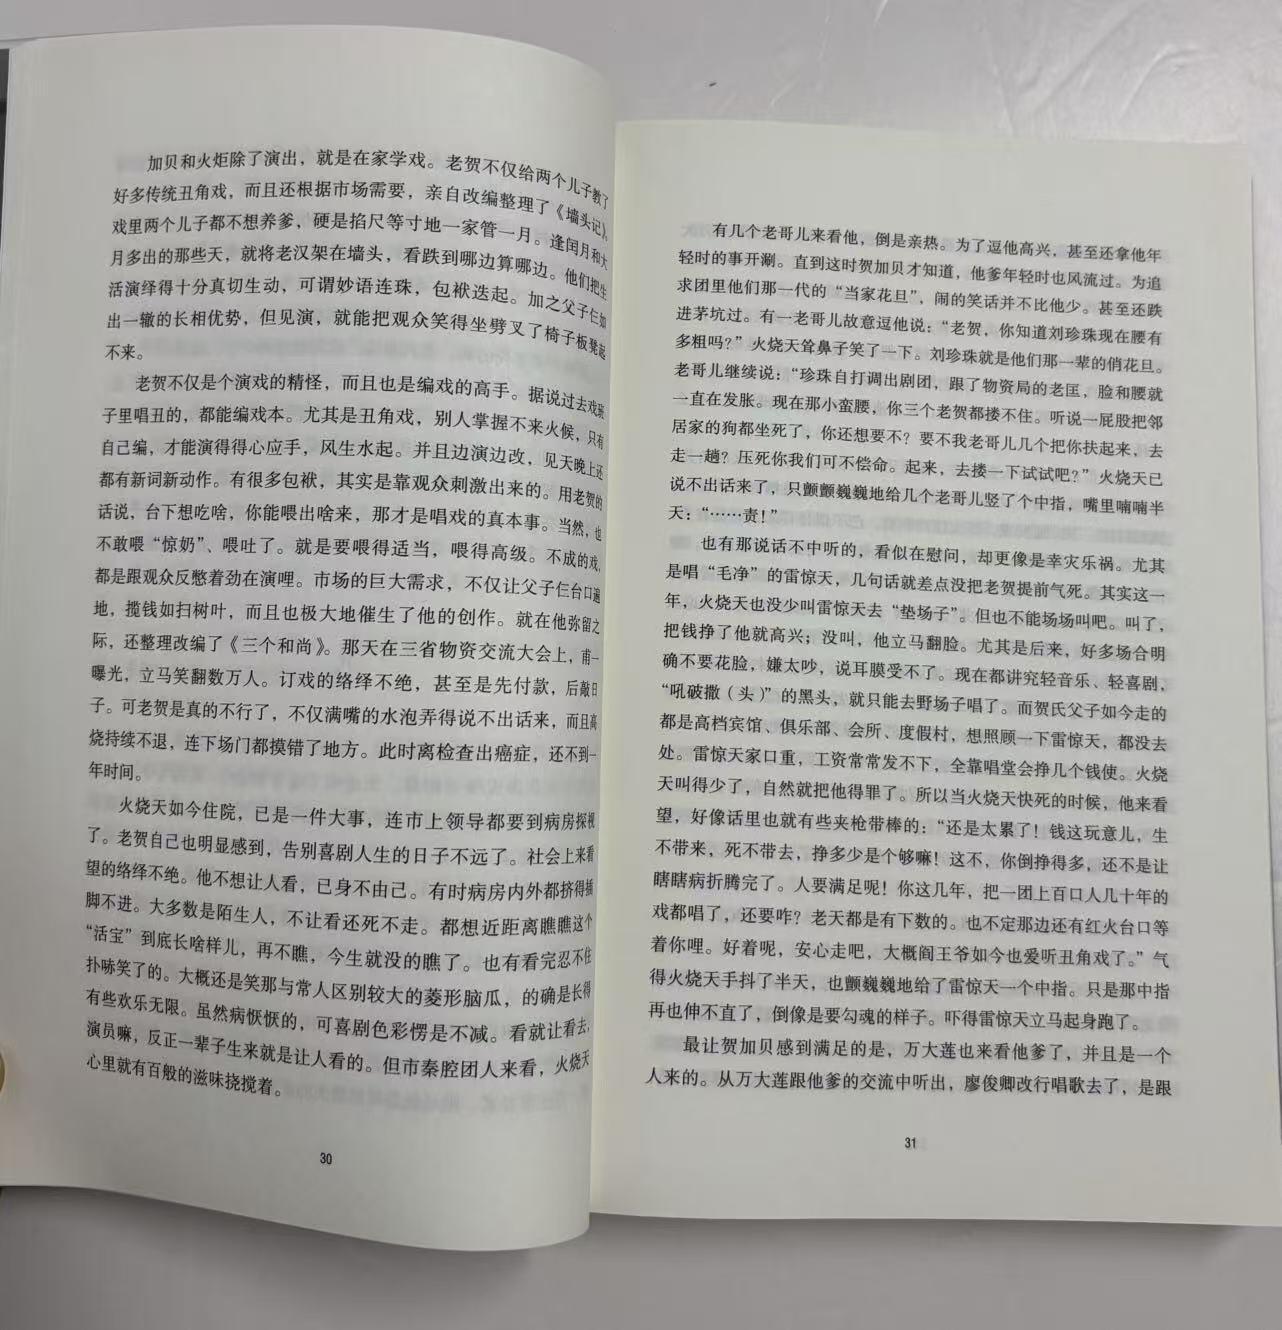 加贝和火炬除了演出，就是在家学戏。老贺不仅给两个儿子教了
好多传统丑角戏，而且还根据市场需要，亲自改编整理了《墙头记》。
戏里两个儿子都不想养爹，硬是掐尺等寸地一家管一月。逢闰月和大
月多出的那些天，就将老汉架在墙头，看跌到哪边算哪边。他们把生
活演绎得十分真切生动，可谓妙语连珠，包袱迭起。加之父子仨如
出一辙的长相优势，但见演，就能把观众笑得坐劈叉了椅子板凳起
不来。
老贺不仅是个演戏的精怪，而且也是编戏的高手。据说过去戏班
子里唱丑的，都能编戏本。尤其是丑角戏，别人掌握不来火候，只有
自己编，才能演得得心应手，风生水起。并且边演边改，见天晚上还
都有新词新动作。有很多包袱，其实是靠观众刺激出来的。用老贺的
话说，台下想吃啥，你能喂出啥来，那才是唱戏的真本事。当然，也
不敢喂“惊奶”、喂吐了。就是要喂得适当，喂得高级。不成的戏，
都是跟观众反憋着劲在演哩。市场的巨大需求，不仅让父子仨台口遍
地，揽钱如扫树叶，而且也极大地催生了他的创作。就在他弥留之
际，还整理改编了《三个和尚》。那天在三省物资交流大会上，甫一
曝光，立马笑翻数万人。订戏的络绎不绝，甚至是先付款，后敲日
子。可老贺是真的不行了，不仅满嘴的水泡弄得说不出话来，而且高
烧持续不退，连下场门都摸错了地方。此时离检查出癌症，还不到一
年时间。
火烧天如今住院，已是一件大事，连市上领导都要到病房探视
了。老贺自己也明显感到，告别喜剧人生的日子不远了。社会上来看
望的络绎不绝。他不想让人看，已身不由己。有时病房内外都挤得插
脚不进。大多数是陌生人，不让看还死不走。都想近距离瞧瞧这个
“活宝”到底长啥样儿，再不瞧，今生就没的瞧了。也有看完忍不住
扑哧笑了的。大概还是笑那与常人区别较大的菱形脑瓜，的确是长得
有些欢乐无限。虽然病恹恹的，可喜剧色彩愣是不减。看就让看去，
演员嘛，反正一辈子生来就是让人看的。但市秦腔团人来看，火烧天
心里就有百般的滋味挠搅着。
30
有几个老哥儿来看他，倒是亲热。为了逗他高兴，甚至还拿他年
轻时的事开涮。直到这时贺加贝才知道，他爹年轻时也风流过。为追
求团里他们那一代的“当家花旦”，闹的笑话并不比他少。甚至还跌
进茅坑过。有一老哥儿故意逗他说：“老贺，你知道刘珍珠现在腰有
多粗吗？”火烧天耸鼻子笑了一下。刘珍珠就是他们那一辈的俏花旦。
老哥儿继续说：“珍珠自打调出剧团，跟了物资局的老匡，脸和腰就
一直在发胀。现在那小蛮腰，你三个老贺都搂不住。听说一屁股把邻
居家的狗都坐死了，你还想要不？要不我老哥儿几个把你扶起来，去
走一趟？压死你我们可不偿命。起来，去搂一下试试吧？”火烧天已
说不出话来了，只颤颤巍巍地给几个老哥儿竖了个中指，嘴里喃喃半
天：“……责！”
也有那说话不中听的，看似在慰问，却更像是幸灾乐祸。尤其
是唱“毛净”的雷惊天，几句话就差点没把老贺提前气死。其实这一
年，火烧天也没少叫雷惊天去“垫场子”。但也不能场场叫吧。叫了，
把钱挣了他就高兴；没叫，他立马翻脸。尤其是后来，好多场合明
确不要花脸，嫌太吵，说耳膜受不了。现在都讲究轻音乐、轻喜剧，
“吼破撒（头）”的黑头，就只能去野场子唱了。而贺氏父子如今走的
都是高档宾馆、俱乐部、会所、度假村，想照顾一下雷惊天，都没去
处。雷惊天家口重，工资常常发不下，全靠唱堂会挣几个钱使。火烧
天叫得少了，自然就把他得罪了。所以当火烧天快死的时候，他来看
望，好像话里也就有些夹枪带棒的：“还是太累了！钱这玩意儿，生
不带来，死不带去，挣多少是个够嘛！这不，你倒挣得多，还不是让
瞎瞎病折腾完了。人要满足呢！你这几年，把一团上百口人几十年的
戏都唱了，还要咋？老天都是有下数的。也不定那边还有红火台口等
着你哩。好着呢，安心走吧，大概阎王爷如今也爱听丑角戏了。”气
得火烧天手抖了半天，也颤巍巍地给了雷惊天一个中指。只是那中指
再也伸不直了，倒像是要勾魂的样子。吓得雷惊天立马起身跑了。
最让贺加贝感到满足的是，万大莲也来看他爹了，并且是一个
人来的。从万大莲跟他爹的交流中听出，廖俊卿改行唱歌去了，是跟
31